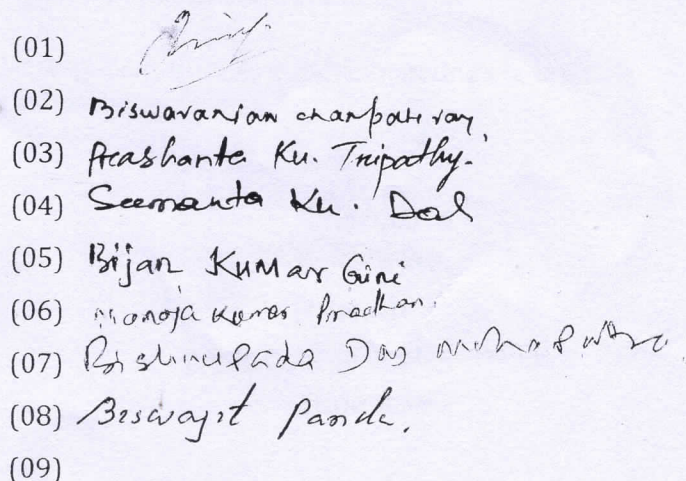 (01)
(02) Biswaranjan Champati ray
(03) Prashanta Ku. Tripathy.
(04) Seemanta Ku. Das
(05) Bijan Kumar Giri
(06) Manoja Kumar Pradhan.
(07) Bishnupada Das
(08) Biswajit Panda.
(09)